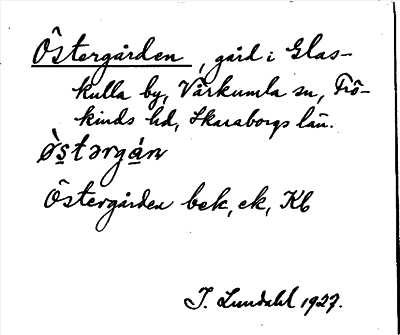 Östergården, gård i Glas-
kulla by, Vårkumla sn, Frö-
kinds hd, Skaraborgs län.
östərgán
Östergården bek, ek, Kb
I. Lundahl 1927.